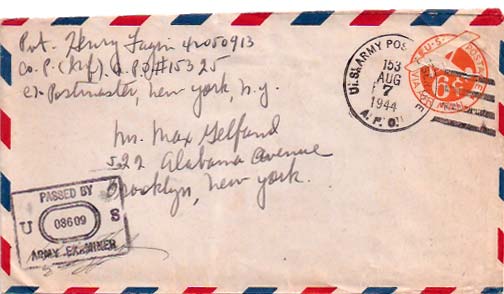 Pvt. Henry Fagin 42050913
Co. P. A.P.O #15325
c/o Postmaster, New York, N.Y.
Mr. Max Gelfand
522 Alabama Avenue
Brooklyn, New York.
U.S. ARMY POS
153
AUG
7
1944
A.P.O.
U.S. POSTAGE
6¢
PASSED BY
U 08609 S
ARMY EXAMINER